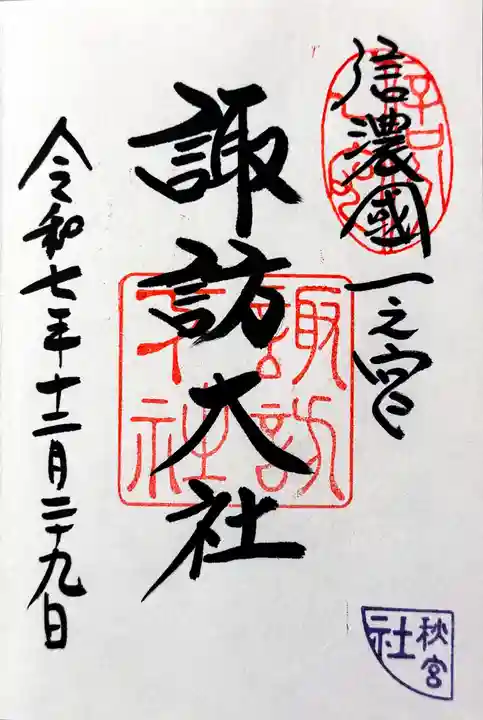 信濃國一之宮
諏訪大社
令和七年十二月二十九日
諏訪
下社
秋宮
社